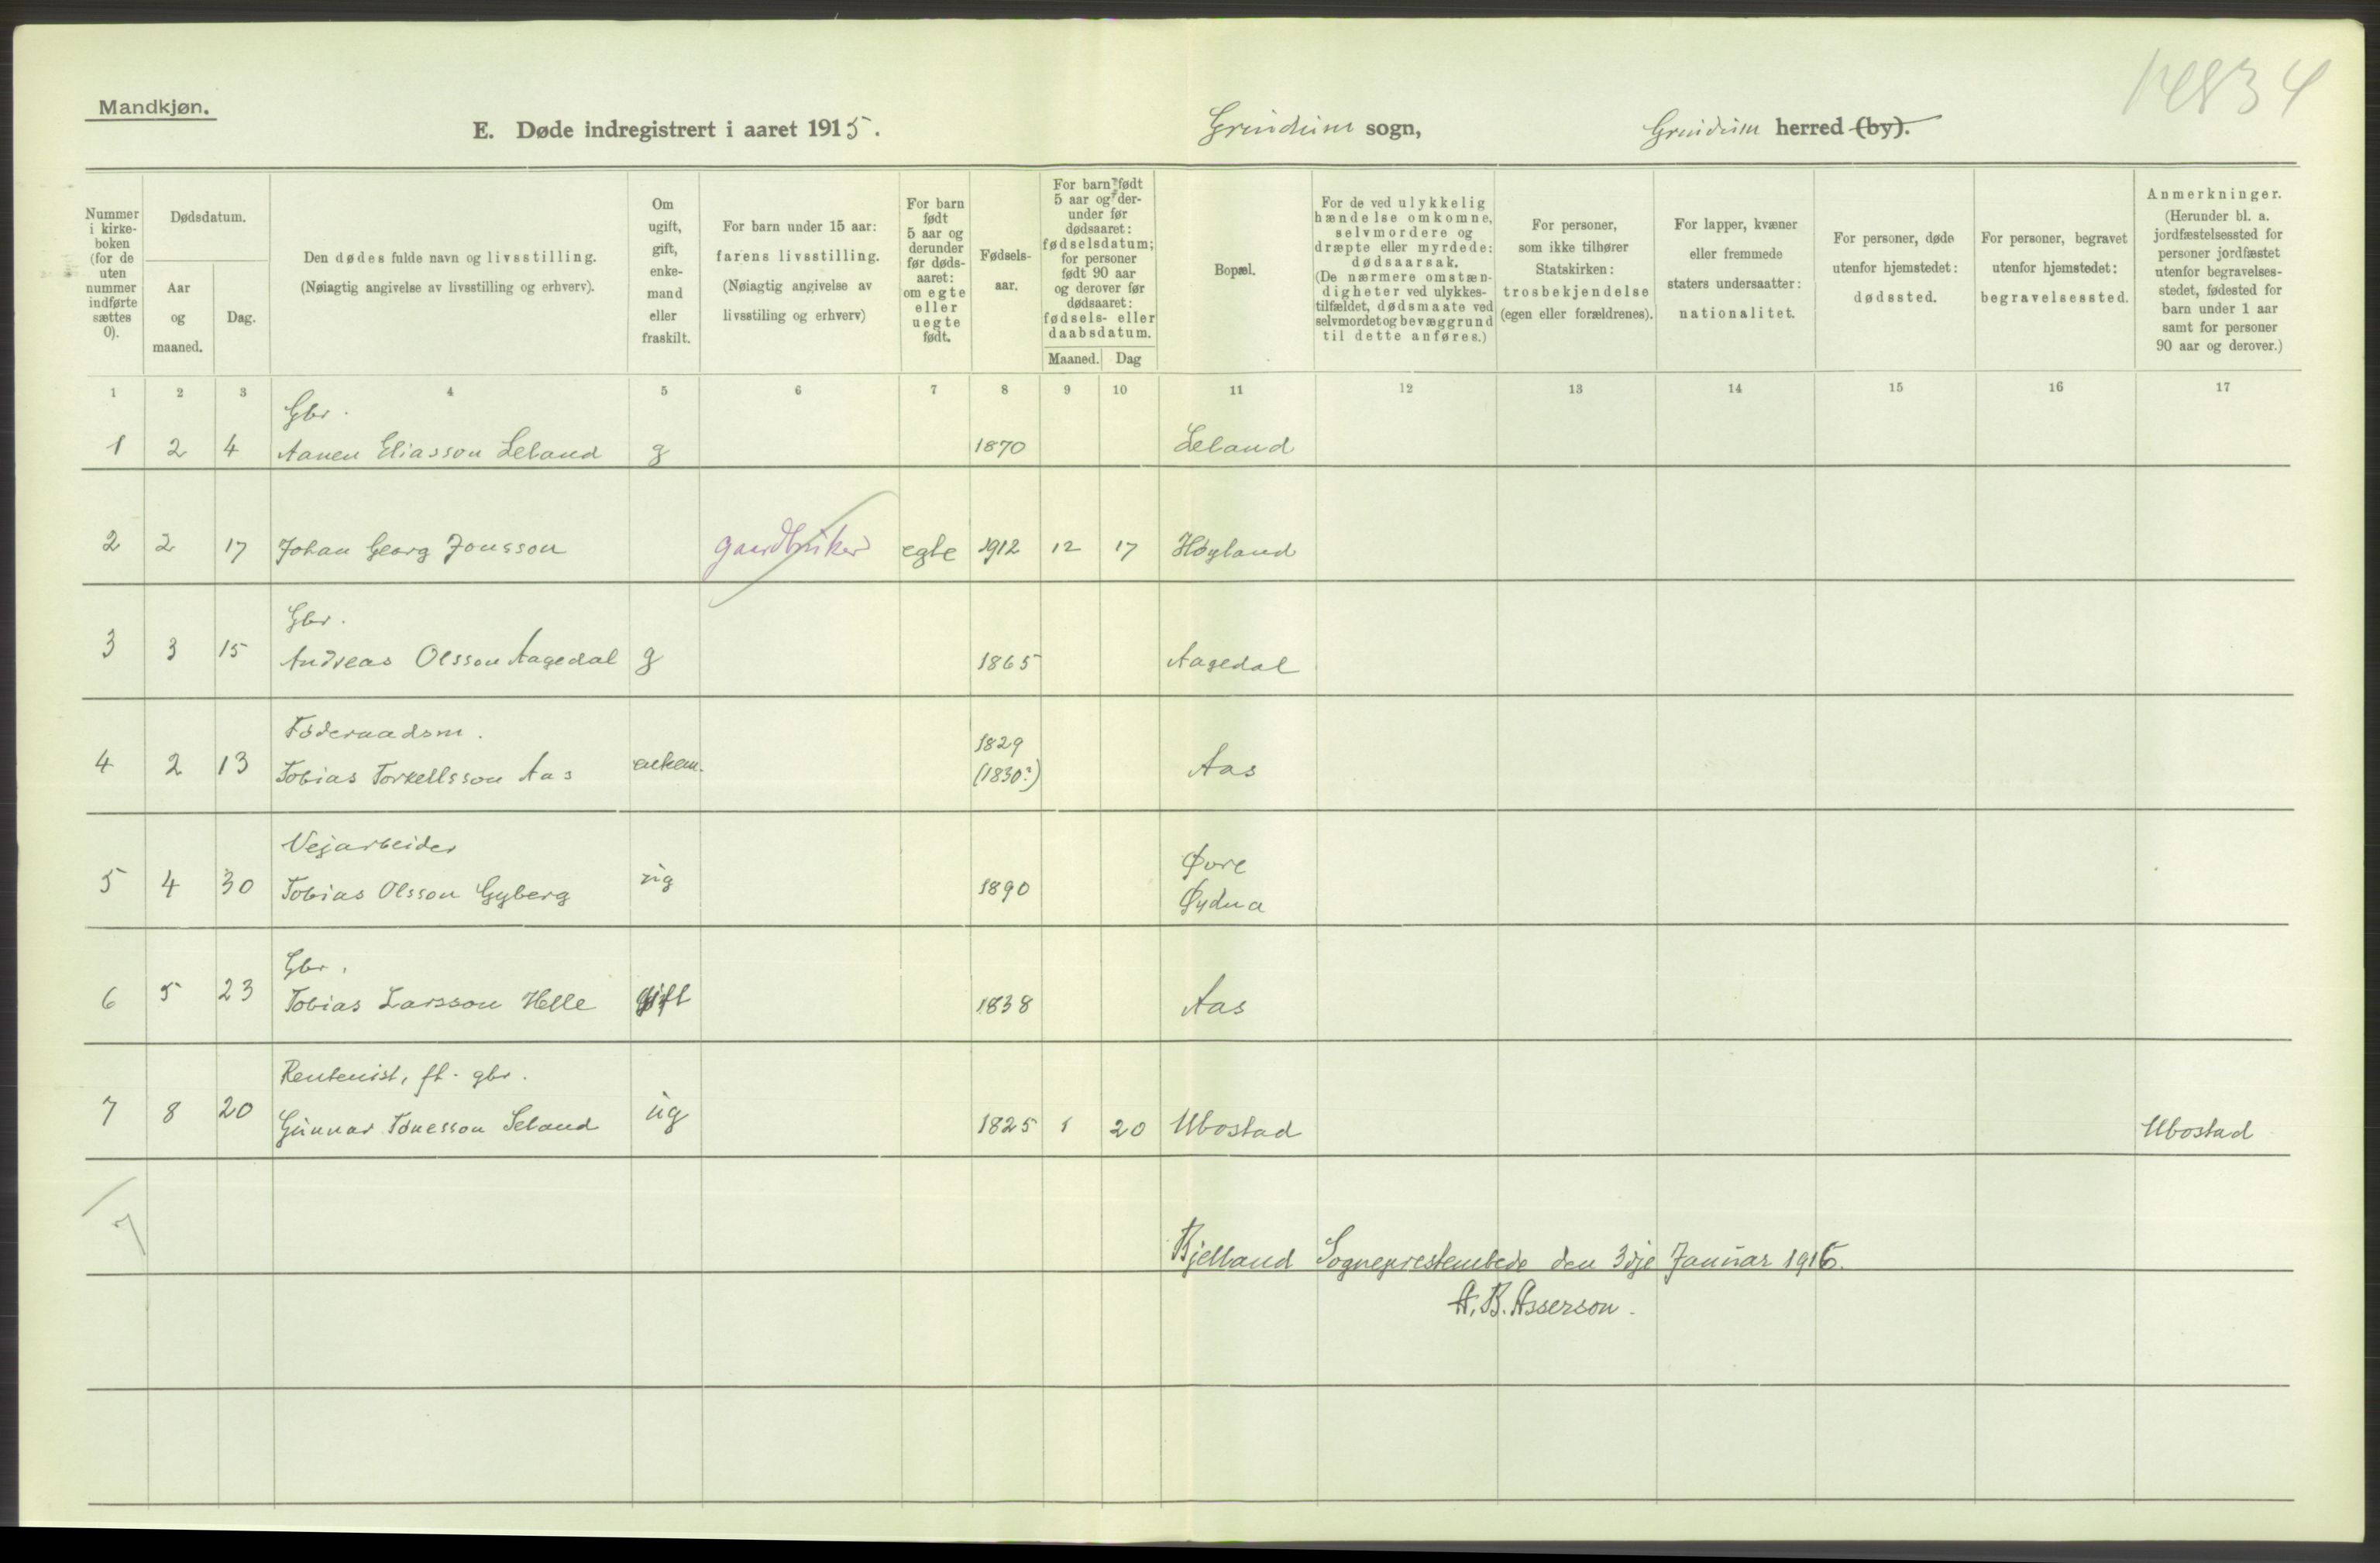 Mandkjøn.
14834
E. Døde indregistrert i aaret 1915. Grindum sogn, Grindum herred (by).
Nummer i kirkeboken (for de uten nummer indførte sættes 0).
Dødsdatum.
Aar og maaned.
Dag.
Den dødes fulde navn og livsstilling.
(Nøiagtig angivelse av livsstilling og erhverv).
Om ugift, gift, enkemand eller fraskilt.
For barn under 15 aar: farens livsstilling.
(Nøiagtig angivelse av livsstiling og erhverv)
For barn født 5 aar og derunder før dødsaaret: om egte eller uegte født.
Fødselsaar.
For barn født 5 aar og derunder før dødsaaret: fødselsdatum; for personer født 90 aar og derover før dødsaaret: fødsels- eller daabsdatum.
Maaned. Dag
Bopæl.
For de ved ulykkelig hændelse omkomne, selvmordere og dræpte eller myrdede: dødsaarsak.
(De nærmere omstændigheter ved ulykkestilfældet, dødsmaate ved selvmordet og bevæggrund til dette anføres.)
For personer, som ikke tilhører Statskirken: trosbekjendelse (egen eller forældrenes).
For lapper, kvæner eller fremmede staters undersaatter: nationalitet.
For personer, døde utenfor hjemstedet: dødssted.
For personer, begravet utenfor hjemstedet: begravelsessted.
Anmerkninger.
(Herunder bl. a. jordfæstelsessted for personer jordfæstet utenfor begravelsesstedet, fødested for barn under 1 aar samt for personer 90 aar og derover.)
1 2 3 4 5 6 7 8 9 10 11 12 13 14 15 16 17
Gbr.
1 2 4 Aanen Eliasson Leland g 1870 Leland
2 2 17 Johan Georg Jonsson gaardbruker egte 1912 12 17 Høyland
Gbr.
3 3 15 Andreas Olsson Aagedal g 1865 Aagedal
Føderaadsm. 1829
4 2 13 Tobias Torkellsson Aas enkem. (1830?) Aas
Vejarbeider Øvre
5 4 30 Tobias Olsson Gyberg ug 1890 Øydna
Gbr.
6 5 23 Tobias Larsson Helle gift 1838 Aas
Rentenist, fh. gbr.
7 8 20 Gunnar Tønesson Seland ug 1825 1 20 Ubostad Ubostad
7
Bjelland Sogneprestembede den 3dje Januar 1916.
A. B. Asserson.